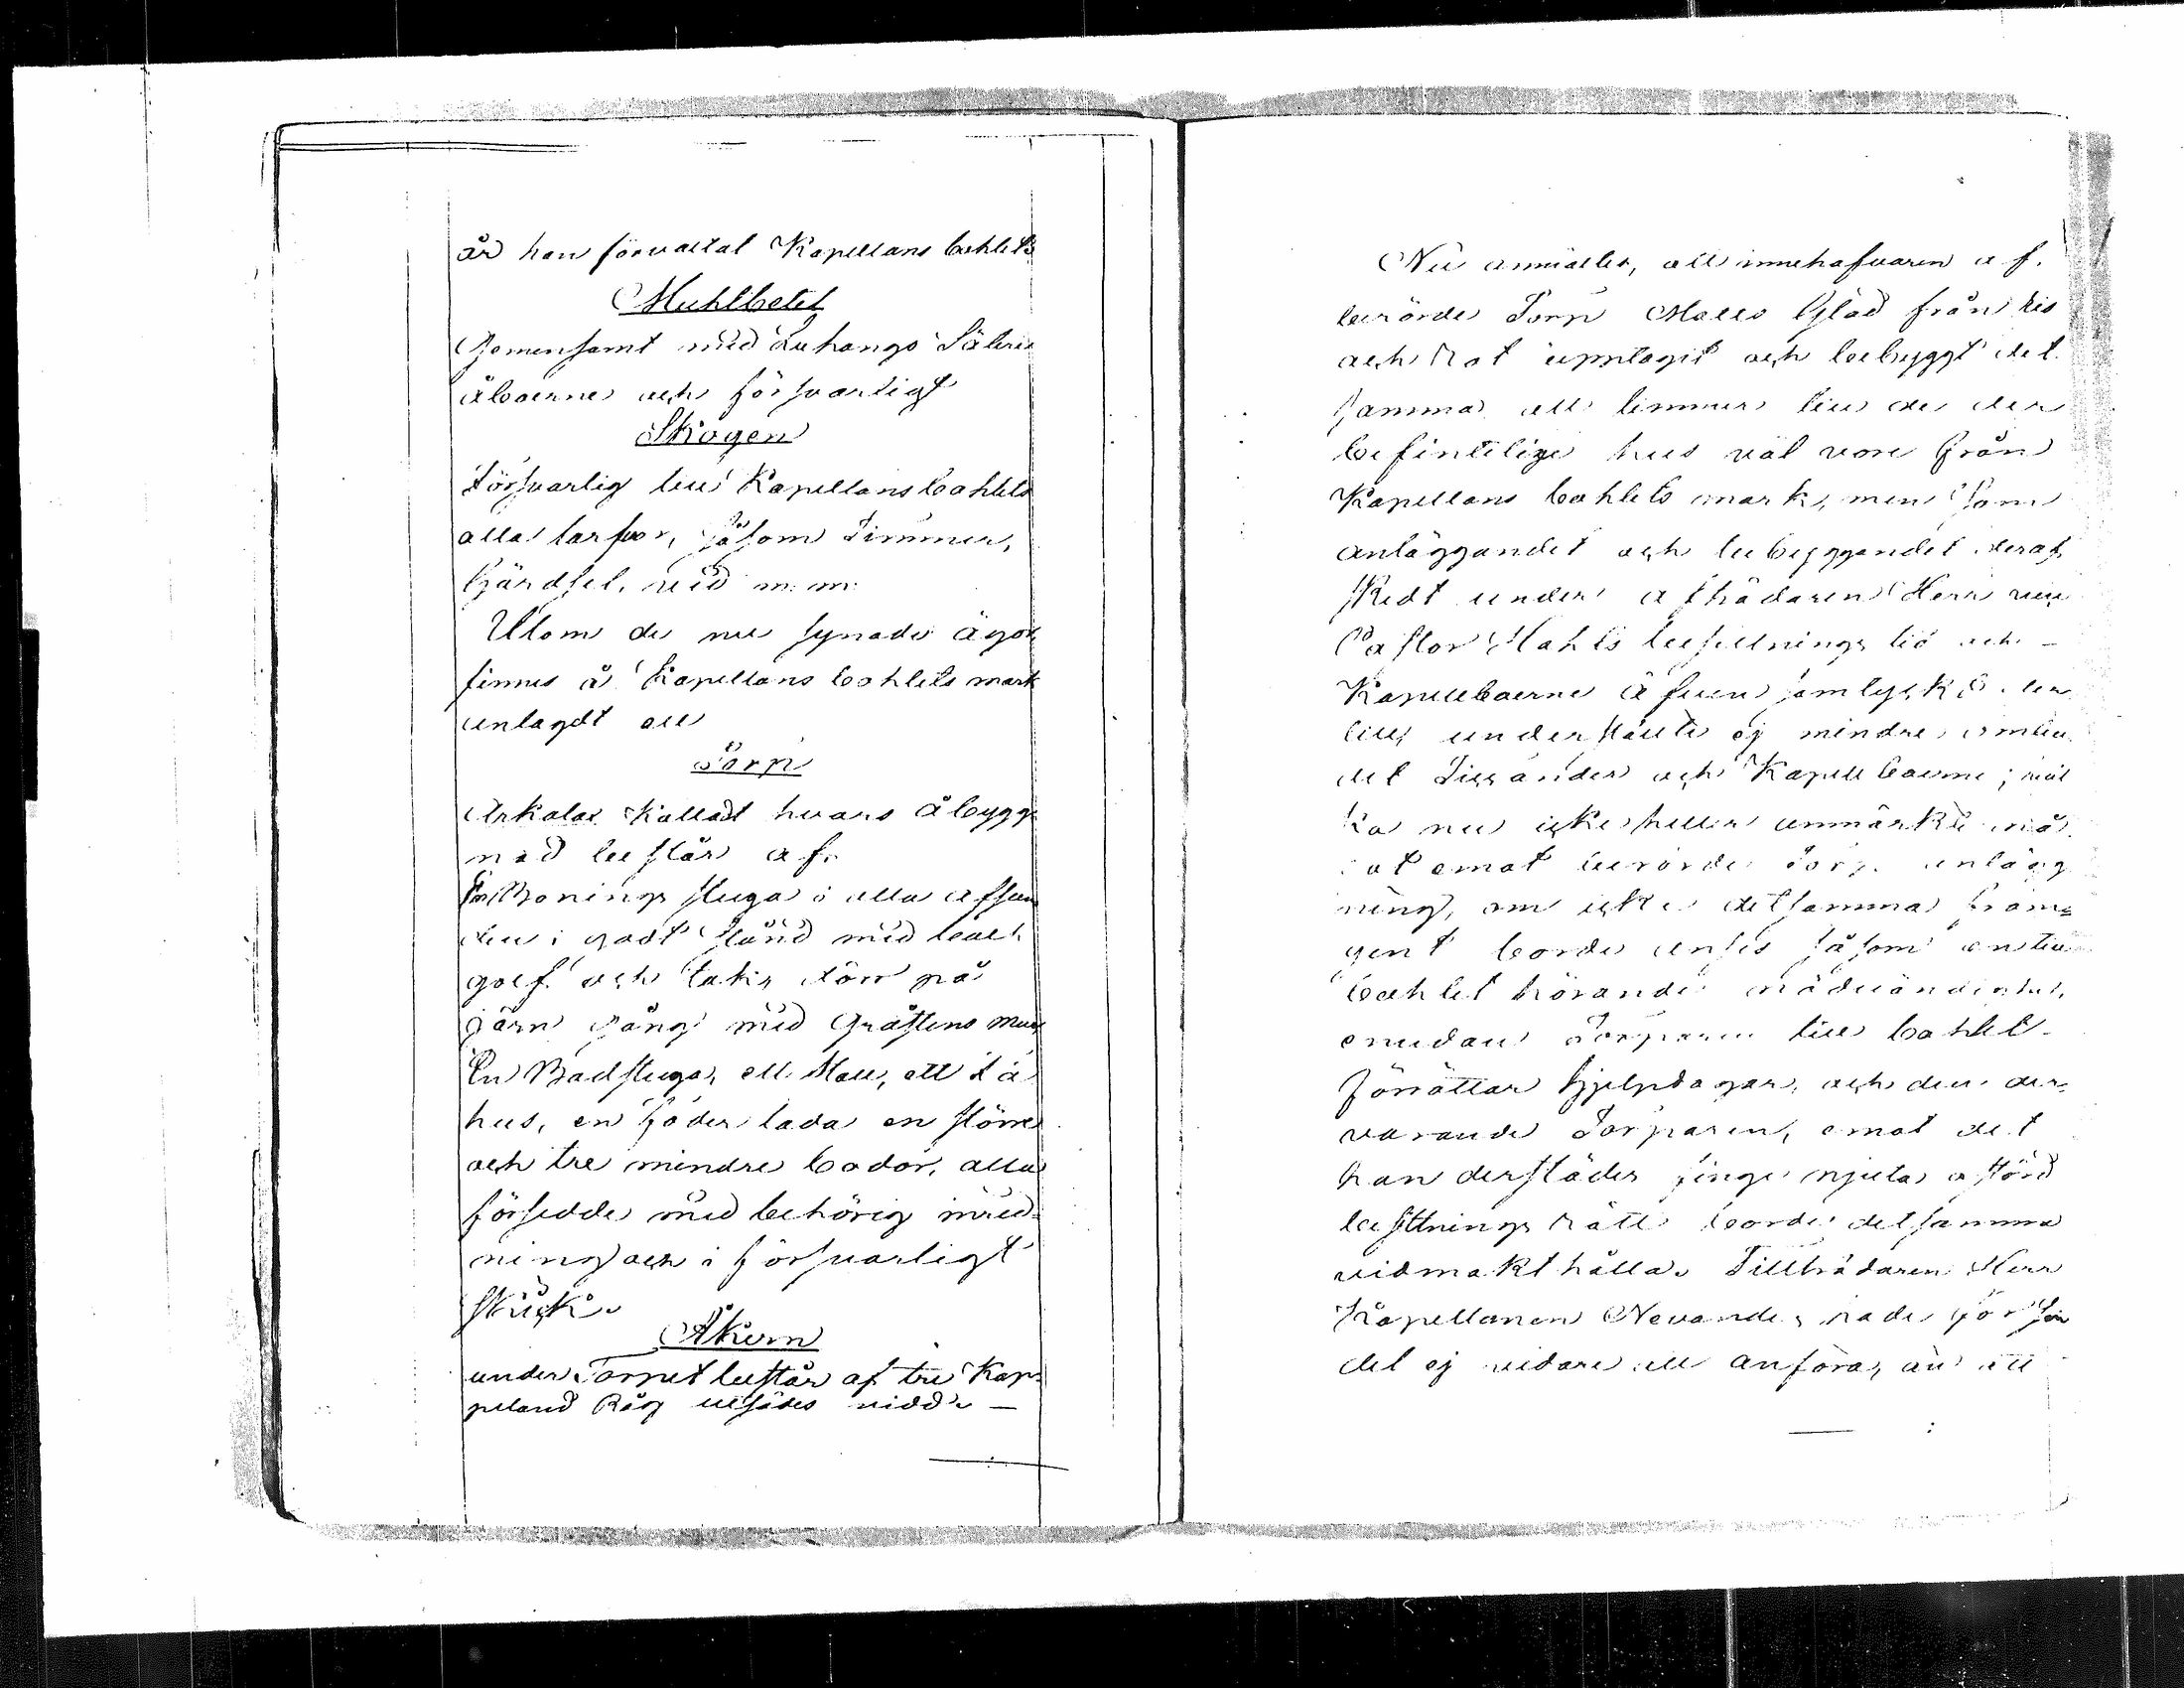 är han förvaltat Kapellans bohlets
Muhlbetet
Gemensamt med Luhango Säteri
åboerne och försvarligt
Skogen
Försvarlig till Kapellans bohlets
alla tarfvor, såsom Timmer,
Gärdsel, ved m: m:
Utom de nu synade ägor
finnes å Kapellans bohlets mark
anlagdt ett
Torp
Arkala kallad hvars åbygg
nad består af.
En Bonings stuga i alla afseen
den i godt stånd med
golf och tak, dörr på
järn gång med Gråstens mur
En Badstuga, ett Stall, ett Fä
hus, en foder lada en större
och tre mindre bodor, alla
försedde med behörig inred-
ning och i försvarligt
skick.
Åkern
under Torpet består af tre Kap-
peland Råg utsädes vidd. —
Nu anmältes, att innehafvaren af
berörde Torp Matts Glad från ris
och rot upptagit och bebyggt det
samma att timmer till de der
befinteliga hus väl vore från
Kapellans bohlets mark, men som
anläggandet och bebyggandet deraf
skedt under afträdaren Herr vice
Pastor Stahls besittnings tid och —
Kapellboerne äfven
till, understödt ej mindre
det och Kapellboerne; väl
ka nu icke heller anmärkte nå
got emot berörde Torp anlägg
ning, om icke detsamma fram-
gent borde anses såsom en till
bohlet hörande
emedan Torparen till bohlet
förrättar hjelpdagar, och den der-
varande Torparen, emot det
han derstädes finge njuta ostörd
besittnings rätt borde detsamma
vidmakthålla. Tillträdaren Herr
Kapellanen Nevander hade för sin
del ej vidare att anföra, än att